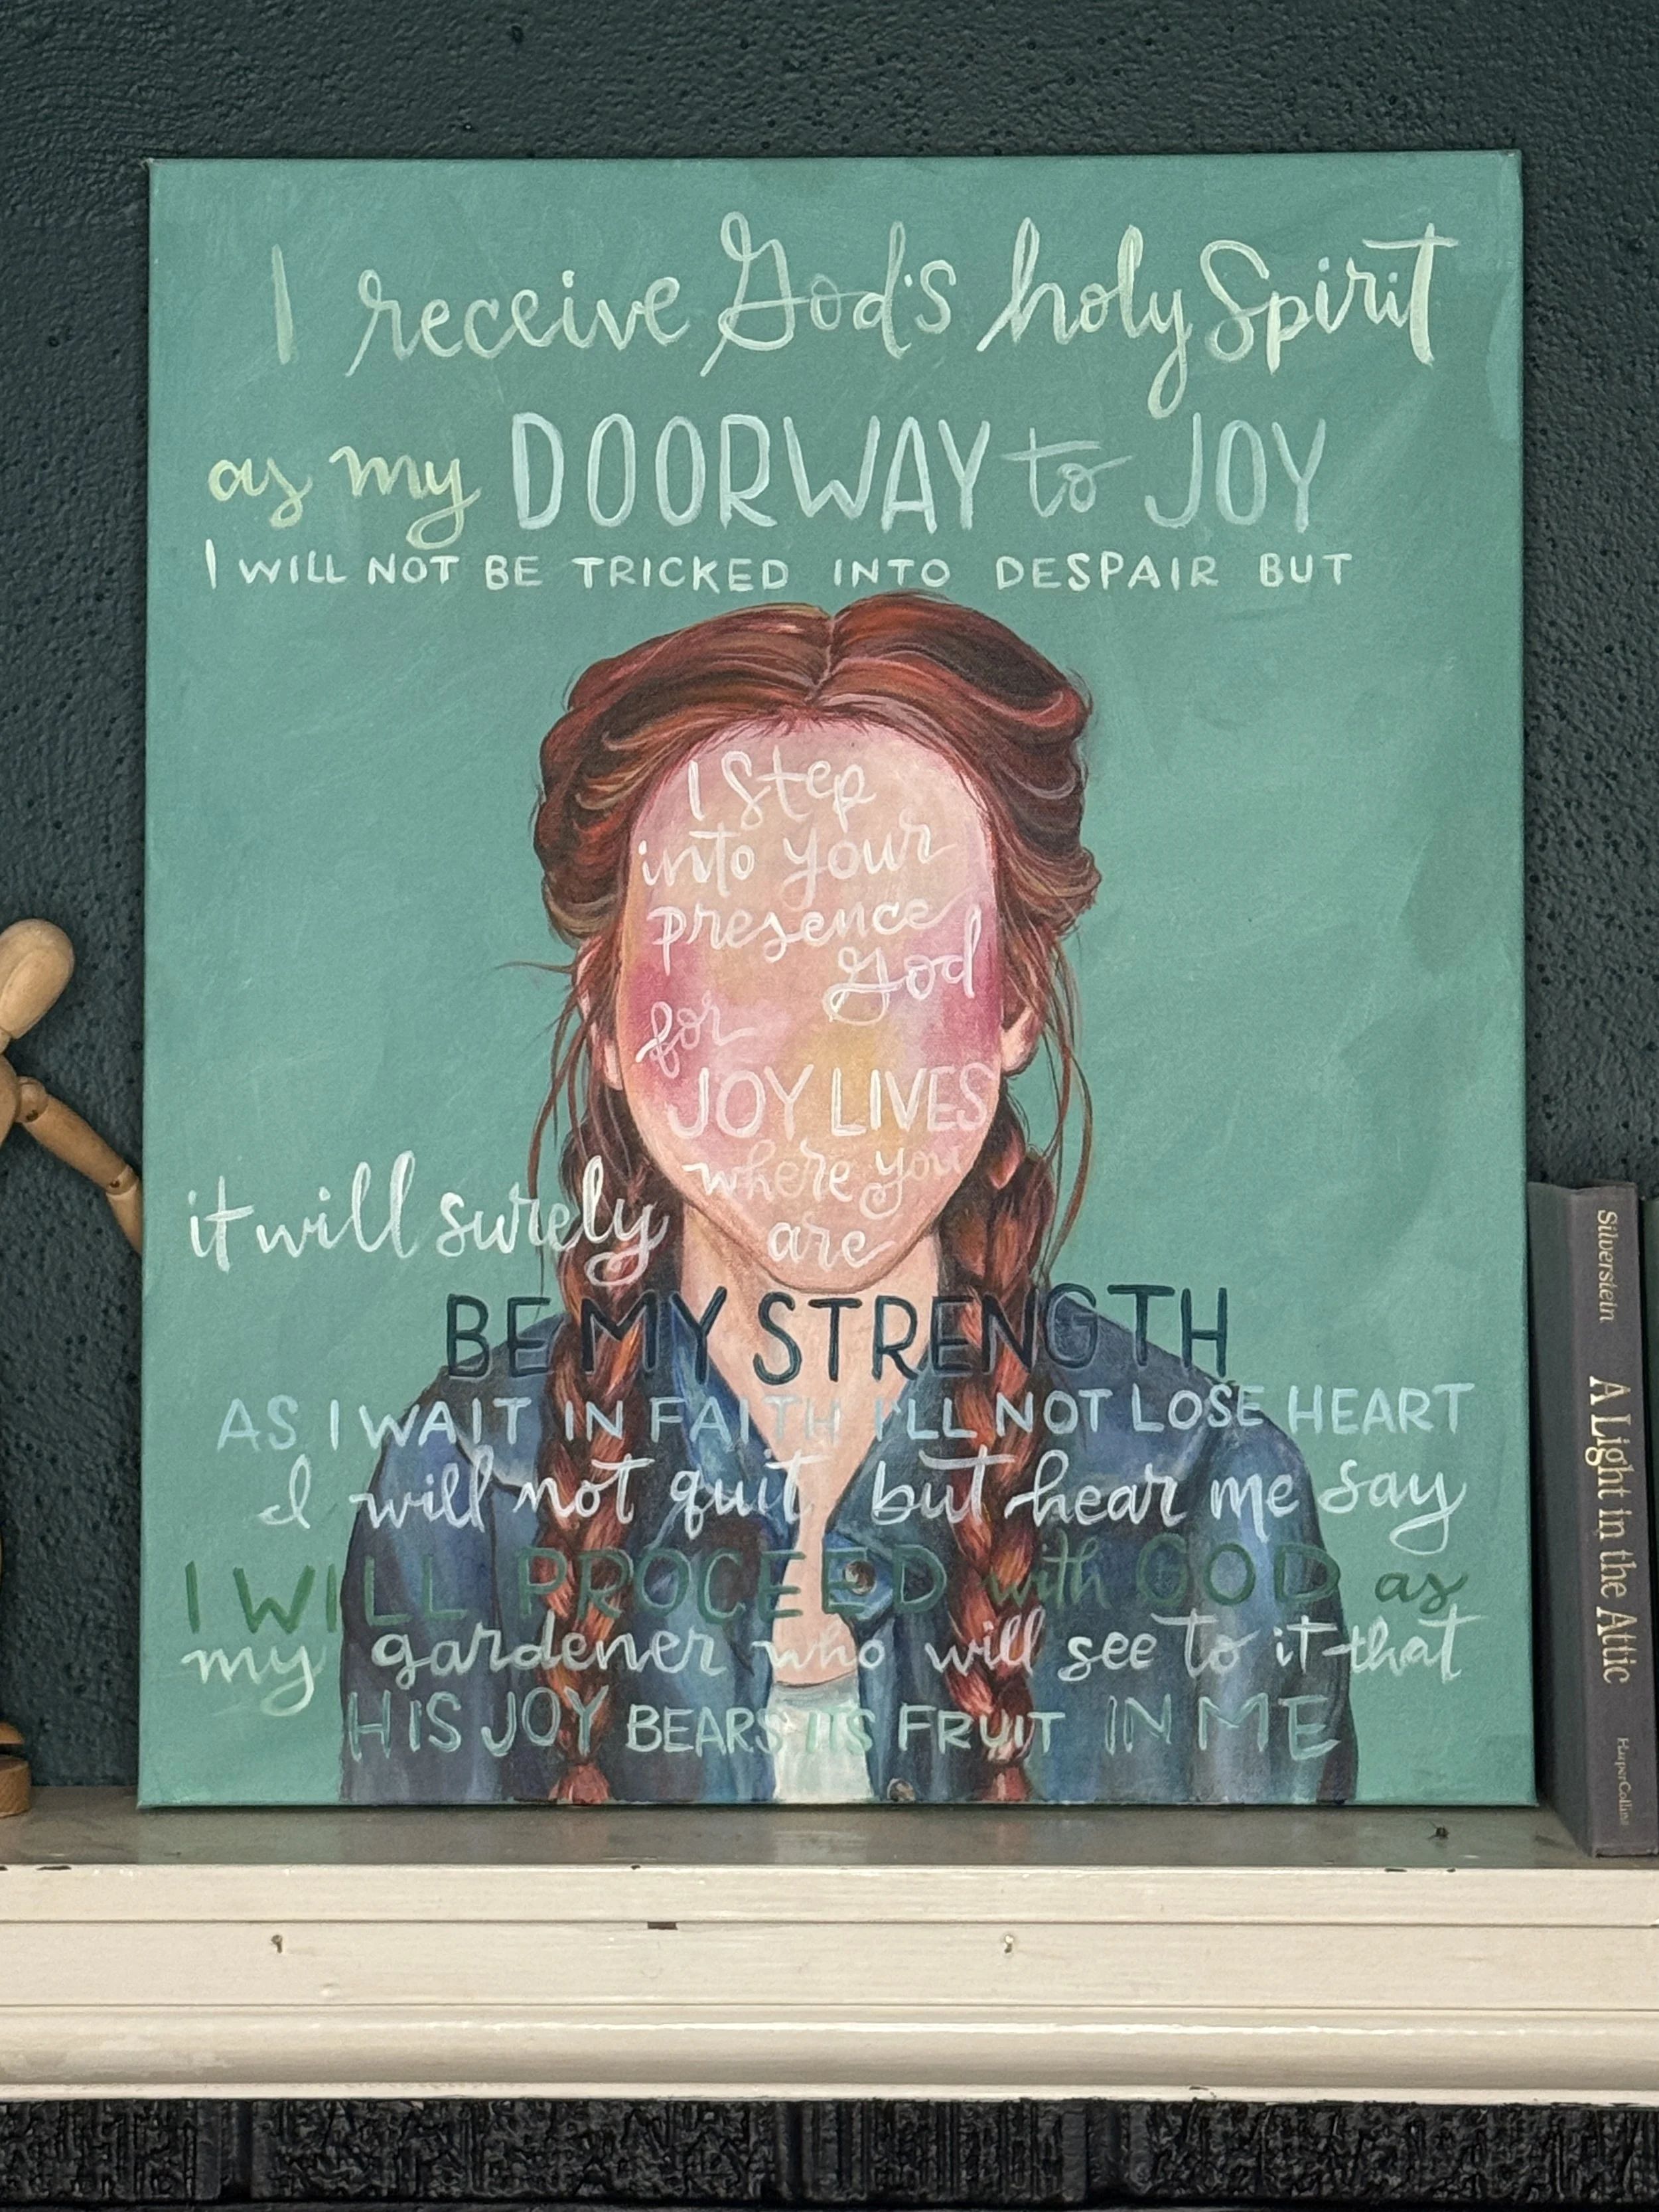 I receive God's holy Spirit
as my DOORWAY to JOY
I WILL NOT BE TRICKED INTO DESPAIR BUT
I Step
into your
presence
God
for
JOY LIVES
where you
are
it will surely
BE MY STRENGTH
AS I WAIT IN FAITH I'LL NOT LOSE HEART
I will not quit but hear me say
I WILL PROCEED with GOD as
my gardener who will see to it that
HIS JOY BEARS ITS FRUIT IN ME
Silverstein A Light in the Attic HarperCollins